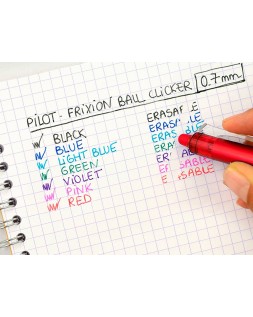 PILOT - FRIXION BALL CLICKER 0.7mm
BLACK
BLUE
LIGHT BLUE
GREEN
VIOLET
PINK
RED
ERASA LE
ERAS BLE
ERA ABLE
ER ABLE
ER SABLE
E SABLE